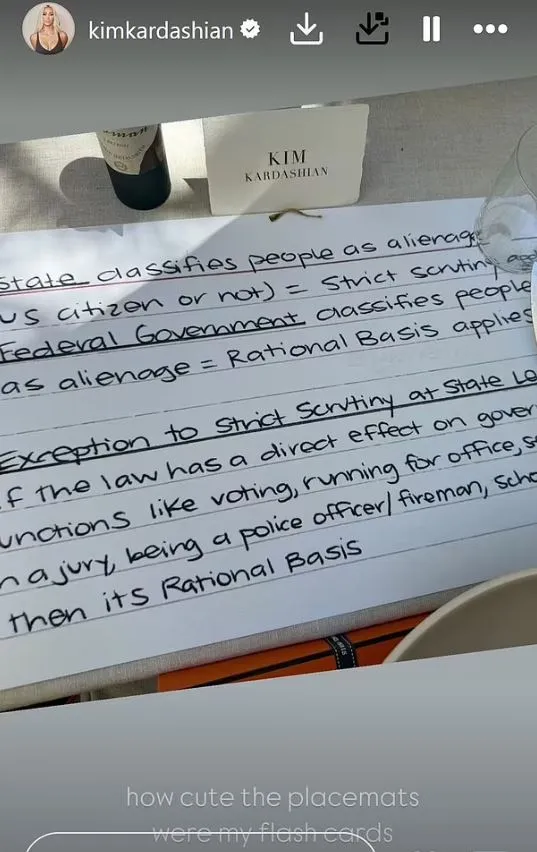 kimkardashian
KIM
KARDASHIAN
State classifies people as alienage
US citizen or not) = Strict Scrutiny
Federal Government classifies people
as alienage = Rational Basis applies
Exception to Strict Scrutiny at State
If the law has a direct effect on
functions like voting, running for office,
a jury, being a police officer/fireman,
then its Rational Basis
how cute the placemats
were my flash cards